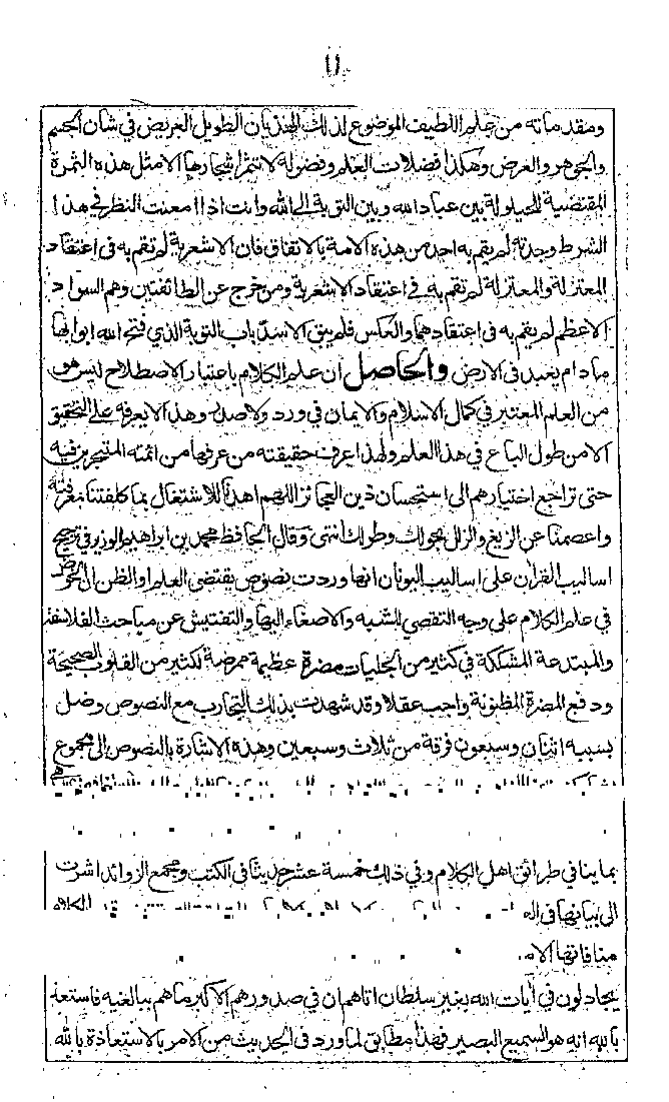 ومقدماته من علم اللطيف الموضوع لذلك الهذيان الطويل العريض في شان الجسم
والجوهر والعرض وهكذا فضلات العلم وفضوله لا تثمر اشجارها الا مثل هذه الثمرة
المقتضية للحيلولة بين عباد الله وبين التوبة الى الله وانت اذا امعنت النظر في هذا
الشرط وجدته لم يقم به احد من هذه الامة بالاتفاق فان الاشعرية لم تقم به في اعتقاد
المعتزلة والمعتزلة لم تقم به في اعتقاد الاشعرية ومن خرج عن الطائفتين وهم السواد
الاعظم لم يقم به في اعتقادهما والعكس فلم يبق الا سد باب التوبة الذي فتح الله ابوابها
ما دام يعبد في الارض والحاصل ان علم الكلام باعتبار الاصطلاح ليس هو
من العلم المعتبر في كمال الاسلام والايمان في ورد ولا صدر وهذا لا يعرفه على التحقيق
الا من طول الباع في هذا العلم ولهذا عرف حقيقته من عرفها من ائمته المتبحرين فيه
حتى تراجع اختيارهم الى استحسان دين العجائز اللهم اهدنا للاشتغال بما كلفتنا بمعرفته
واعصمنا عن الزيغ والزلل بحولك وطولك انتهى وقال الحافظ محمد بن ابراهيم الوزير في ترجيح
اساليب القران على اساليب اليونان انها وردت نصوص يقتضي العلم او الظن ان الخوض
في علم الكلام على وجه التقصي للشبه والاصغاء اليها والتفتيش عن مباحث الفلاسفة
والمبتدعة المشككة في كثير من الجليات مضرة عظيمة ممرضة لكثير من القلوب الصحيحة
ودفع المضرة المظنونة واجب عقلا وقد شهدت بذلك التجارب مع النصوص وضل
بسببه اثنتان وسبعون فرقة من ثلاث وسبعين وهذه الاشارة بالنصوص الى مجموع
بما ينافي طرائق اهل الكلام وفي ذلك خمسة عشر حديثا في الكتب ومجمع الزوائد اشرت
الى بيانها في
منافاتها
يجادلون في آيات الله بغير سلطان اتاهم ان في صدورهم الا كبر ما هم ببالغيه فاستعذ
بالله انه هو السميع البصير فهذا مطابق لما ورد في الحديث من الامر بالاستعاذة بالله